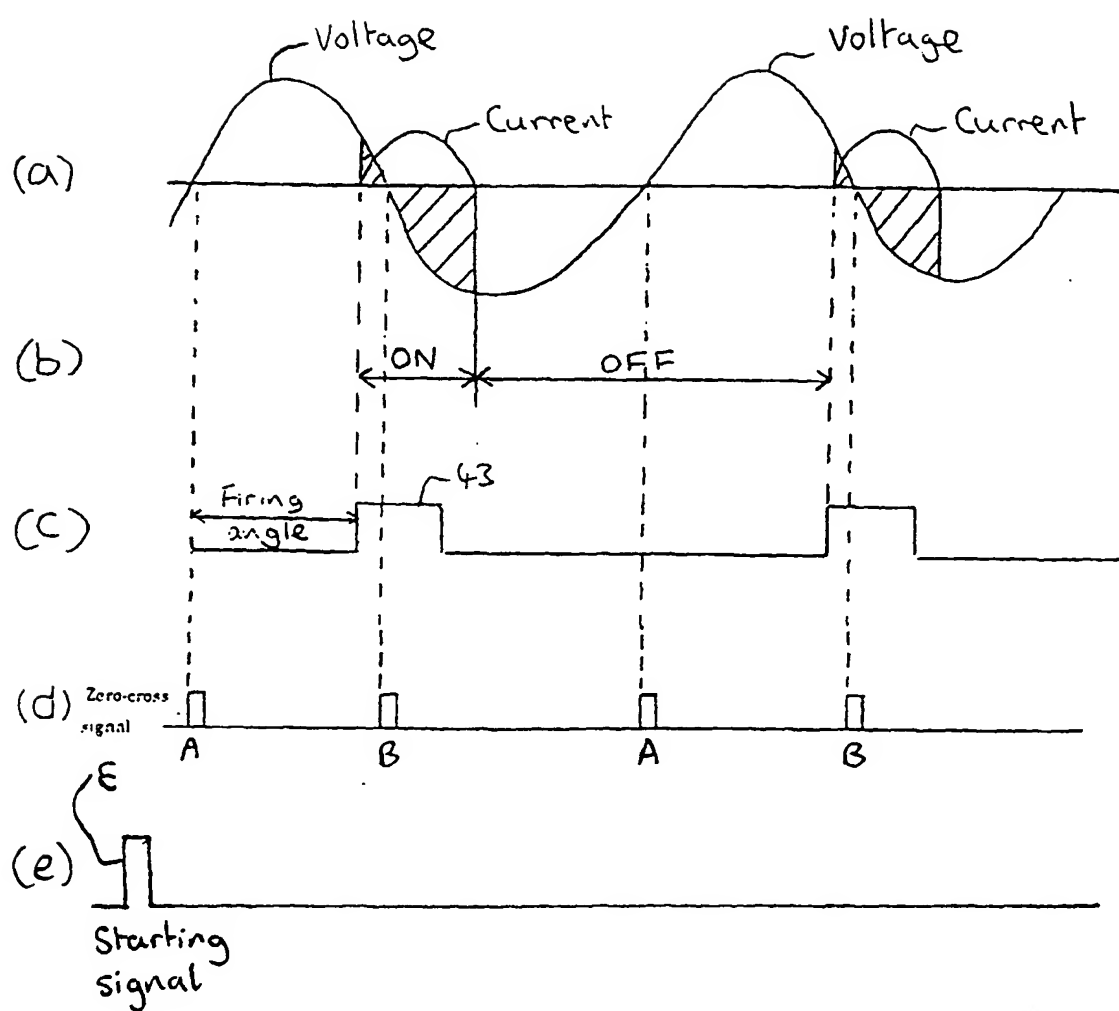 Voltage
Voltage
Current
Current
(a)
(b)
ON
OFF
43
Firing
angle
(c)
(d)
Zero-cross
signal
A
B
A
B
E
(e)
Starting
signal